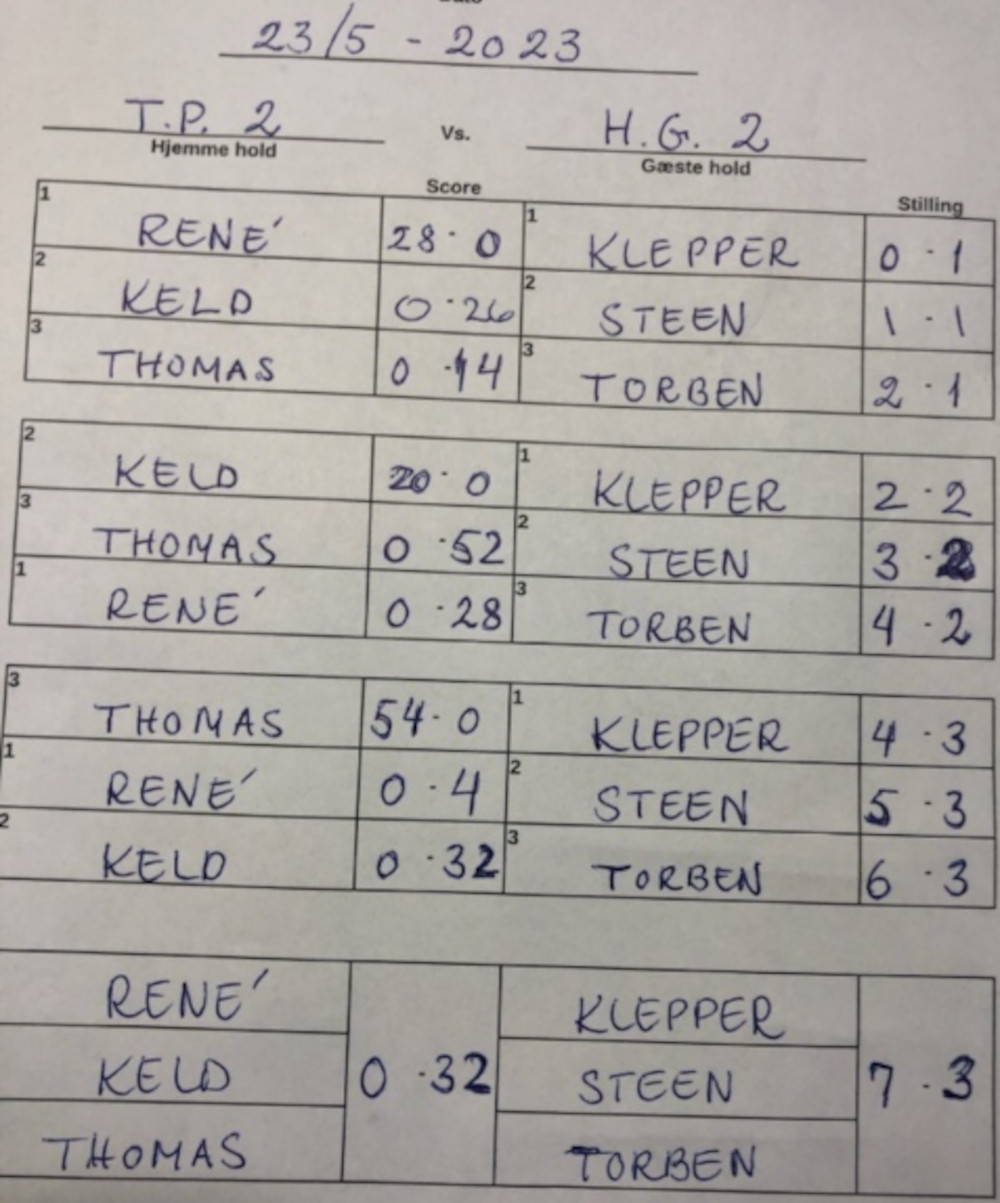 23/5 - 2023
T.P. 2 Vs. H.G. 2
Hjemme hold Gæste hold
Score Stilling
1 RENÉ 28 · 0 1 KLEPPER 0 · 1
2 KELD 0 · 26 2 STEEN 1 · 1
3 THOMAS 0 · 14 3 TORBEN 2 · 1
2 KELD 20 · 0 1 KLEPPER 2 · 2
3 THOMAS 0 · 52 2 STEEN 3 · 2
1 RENÉ 0 · 28 3 TORBEN 4 · 2
3 THOMAS 54 · 0 1 KLEPPER 4 · 3
1 RENÉ 0 · 4 2 STEEN 5 · 3
2 KELD 0 · 32 3 TORBEN 6 · 3
RENÉ KLEPPER
KELD 0 · 32 STEEN 7 · 3
THOMAS TORBEN